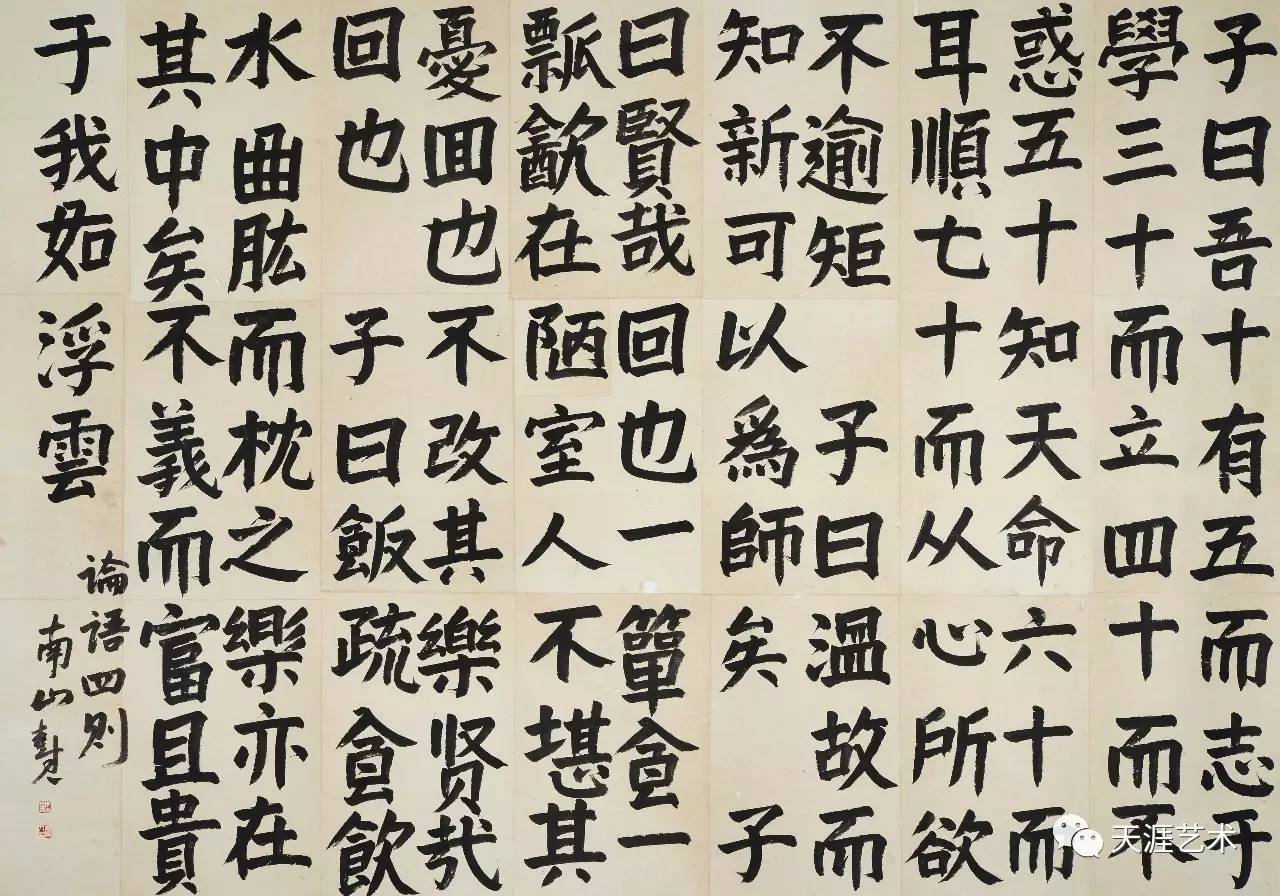 子曰吾十有五而志于
學三十而立四十而不
惑五十知天命六十而
耳順七十而从心所欲
不逾矩 子曰溫故而
知新可以爲師矣 子
曰賢哉回也一簞食一
瓢㱃在陋室人不堪其
憂囬也不改其樂贤哉
回也 子曰飯疏食飲
水曲肱而枕之樂亦在
其中矣不義而富且貴
于我如浮雲
論語四则
南山
天涯艺术